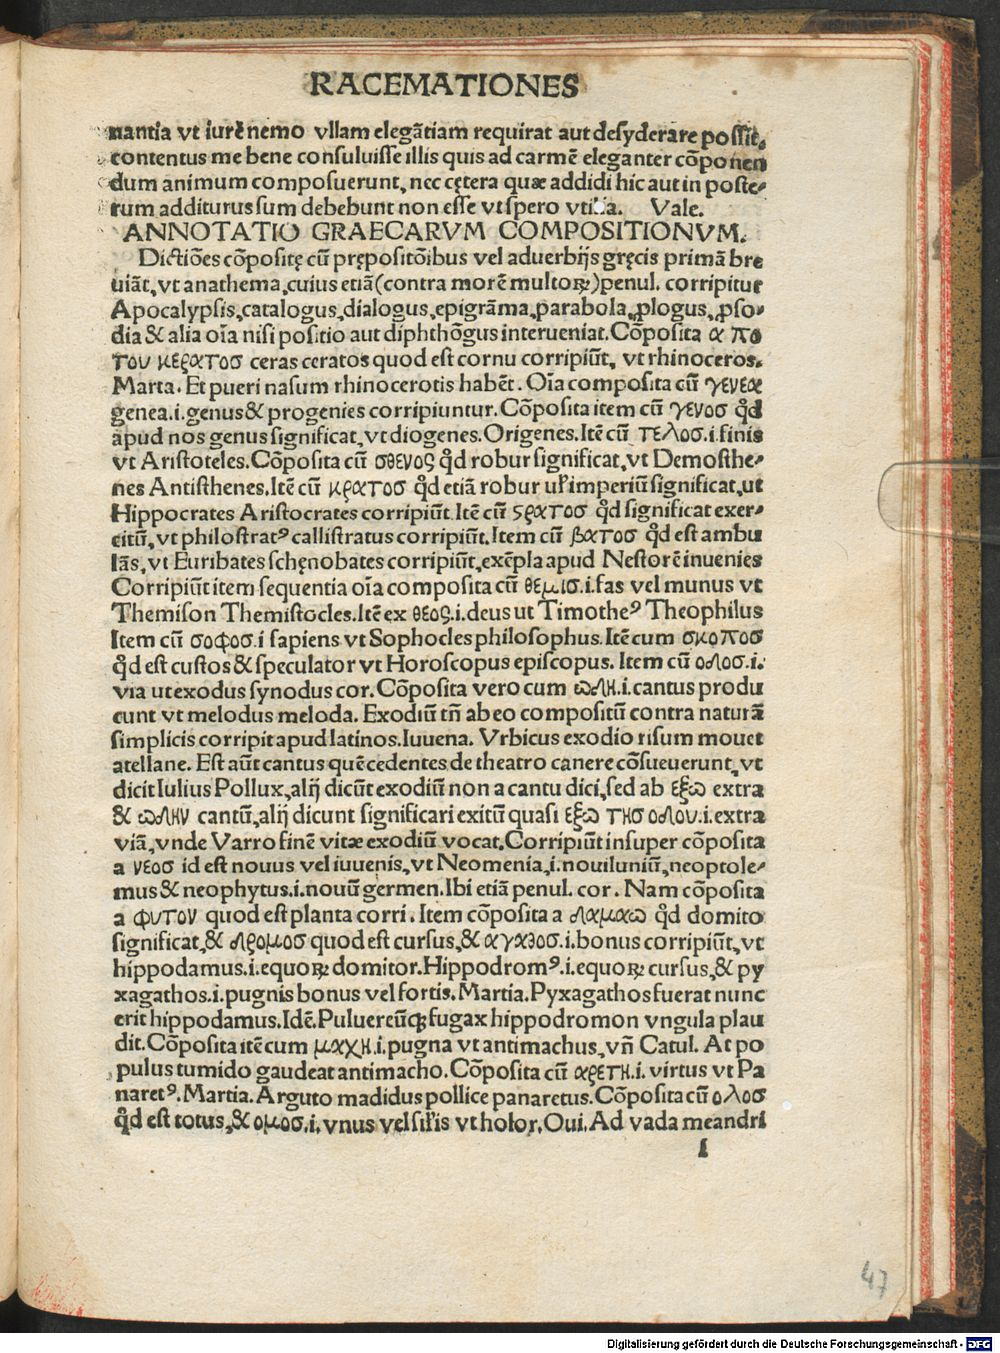 RACEMATIONES
nantia vt iurē nemo vllam elegātiam requirat aut desyderare possit,
contentus me bene consuluisse illis quis ad carmē eleganter cōponen
dum animum composuerunt, nec cętera quæ addidi hic aut in poste-
rum additurus sum debebunt non esse vt spero vtilia. Vale.
ANNOTATIO GRAECARVM COMPOSITIONVM.
Dictiōes cōpositę cū prępositōibus vel aduerbijs gręcis primā bre
uiāt, vt anathema, cuius etiā (contra morē multoꝝ) penul. corripitur
Apocalypsis, catalogus, dialogus, epigrāma, parabola, ꝓlogus, ꝓso-
dia & alia oīa nisi positio aut diphthōgus interueniat. Cōposita α πο
του κερατοσ ceras ceratos quod est cornu corripiūt, vt rhinoceros.
Marta. Et pueri nasum rhinocerotis habēt. Oīa composita cū γενεα
genea.i.genus & progenies corripiuntur. Cōposita item cū γενοσ qd̄
apud nos genus significat, vt diogenes. Origenes. Itē cū τελοσ.i.finis
vt Aristoteles. Cōposita cū σθενος qd̄ robur significat, vt Demosthe-
nes Antisthenes. Itē cū κρατοσ qd̄ etiā robur ul̄ imperiū significat, ut
Hippocrates Aristocrates corripiūt. Itē cū ϛρατοσ qd̄ significat exer-
citū, vt philostratꝰ callistratus corripiūt. Item cū βατοσ qd̄ est ambu
lās, vt Euribates schęnobates corripiūt, exēpla apud Nestorē inuenies
Corripiūt item sequentia oīa composita cū θεμισ.i.fas vel munus vt
Themison Themistocles. Itē ex θεος.i.deus ut Timotheꝰ Theophilus
Item cū σοφοσ.i sapiens vt Sophocles philosophus. Itē cum σκοποσ
qd̄ est custos & speculator vt Horoscopus episcopus. Item cū οδοσ.i.
via ut exodus synodus cor. Cōposita vero cum ωδη.i.cantus produ
cunt vt melodus meloda. Exodiū tn̄ ab eo compositū contra naturā
simplicis corripit apud latinos. Iuuena. Vrbicus exodio risum mouet
atellane. Est aūt cantus quē cedentes de theatro canere cōsueuerunt, vt
dicit Iulius Pollux, alij dicūt exodiū non a cantu dici, sed ab εξω extra
& ωδην cantū, alij dicunt significari exitū quasi εξω τησ οδου.i.extra
viā, vnde Varro finē vitæ exodiū vocat. Corripiūt insuper cōposita
a νεοσ id est nouus vel iuuenis, vt Neomenia, i. nouiluniū, neoptole-
mus & neophytus.i.nouū germen. Ibi etiā penul. cor. Nam cōposita
a φυτον quod est planta corri. Item cōposita a δαμαω qd̄ domito
significat, & δρομοσ quod est cursus, & αγαθοσ.i.bonus corripiūt, vt
hippodamus.i.equoꝝ domitor. Hippodromꝰ.i.equoꝝ cursus, & py
xagathos.i.pugnis bonus vel fortis. Martia. Pyxagathos fuerat nunc
erit hippodamus. Idē. Puluereūqꝫ fugax hippodromon vngula plau
dit. Cōposita itē cum μαχη.i.pugna vt antimachus, vn̄ Catul. At po
pulus tumido gaudeat antimacho. Cōposita cū αρετη.i. virtus vt Pa
naretꝰ. Martia. Arguto madidus pollice panaretus. Cōposita cū ολοσ
qd̄ est totus, & ομοσ.i. vnus vel sil̄is vt holor. Oui. Ad vada meandri
l
47
Digitalisierung gefördert durch die Deutsche Forschungsgemeinschaft - DFG